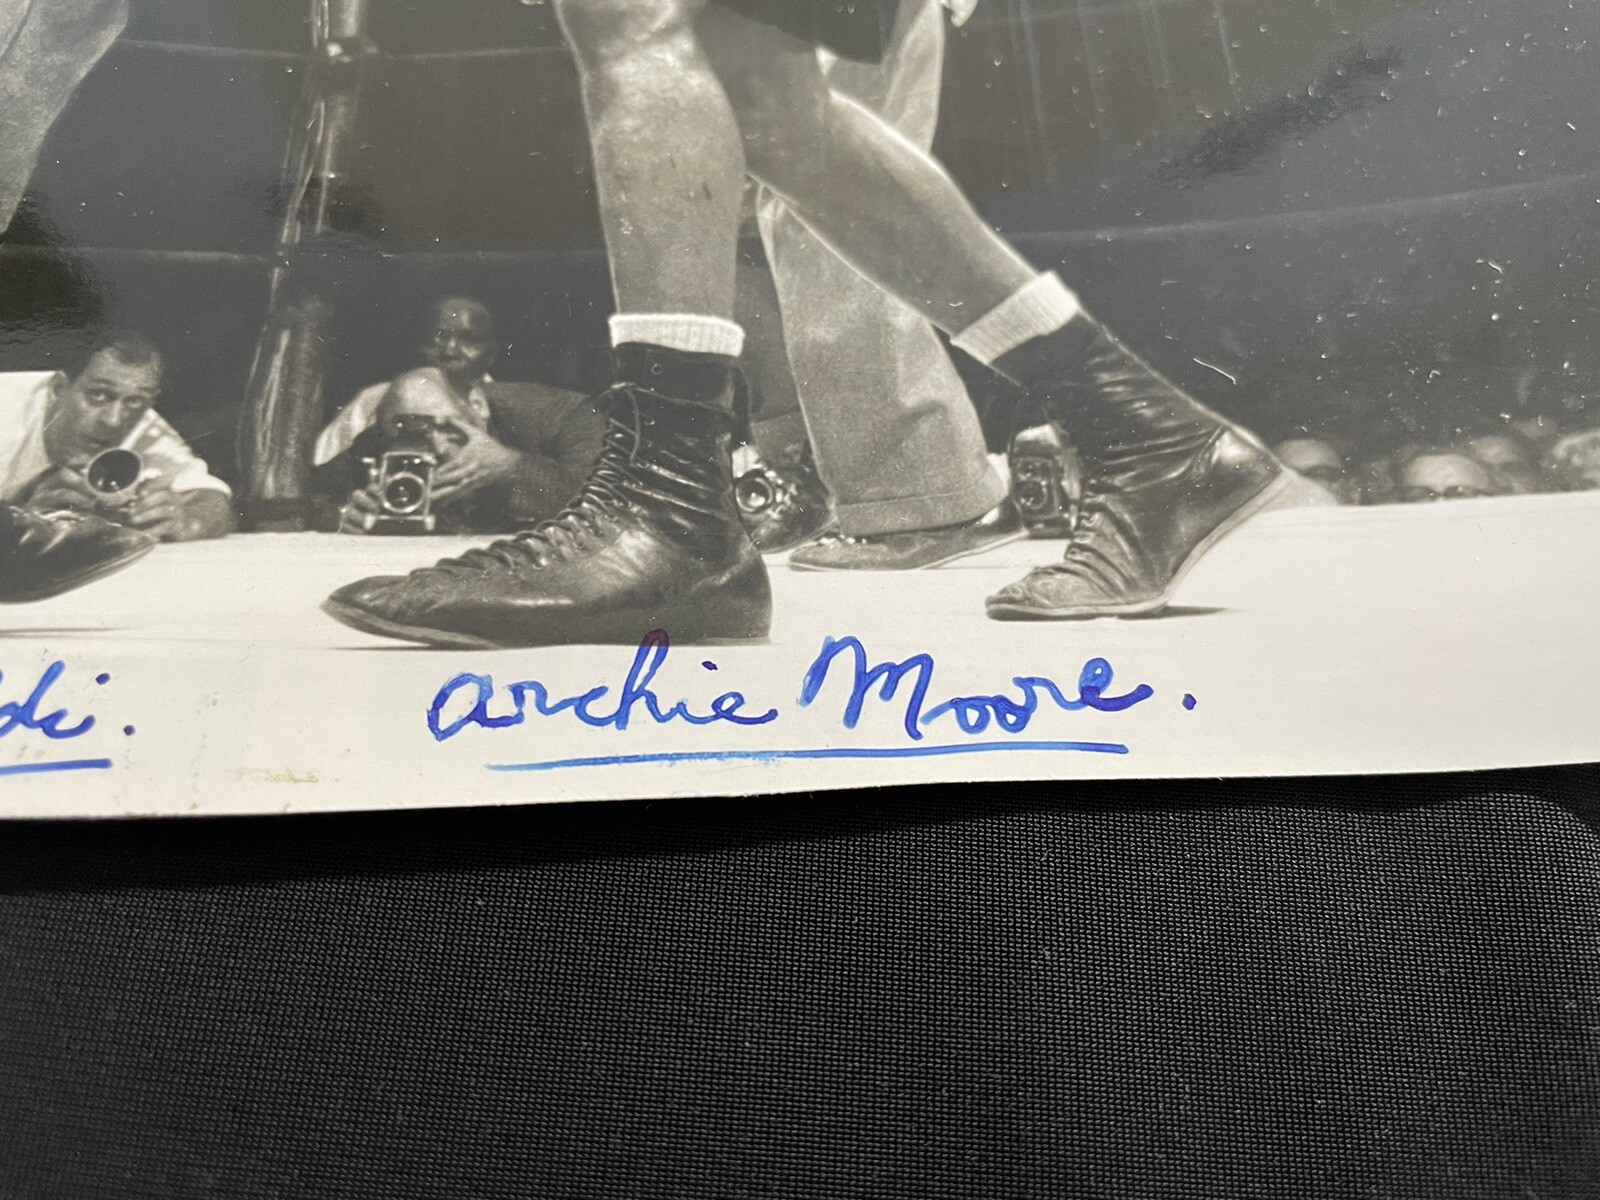 di. Archie Moore.